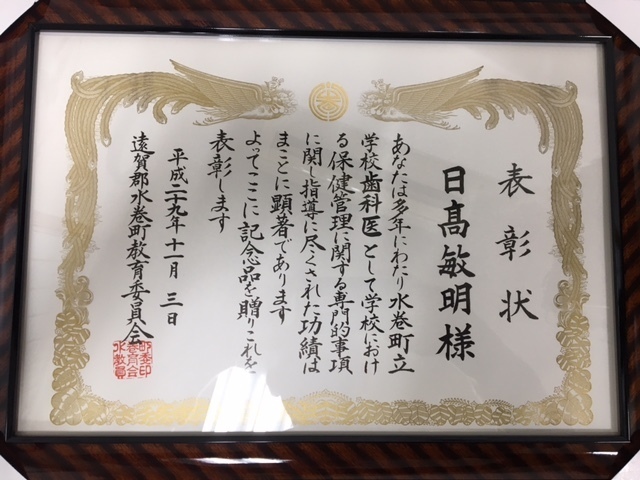 表彰状
日髙敏明様
あなたは多年にわたり水巻町立
学校歯科医として学校におけ
る保健管理に関する専門的事項
に関し指導に尽くされた功績は
まことに顕著であります
よってここに記念品を贈りこれを
表彰します
平成二十九年十一月三日
遠賀郡水巻町教育委員会